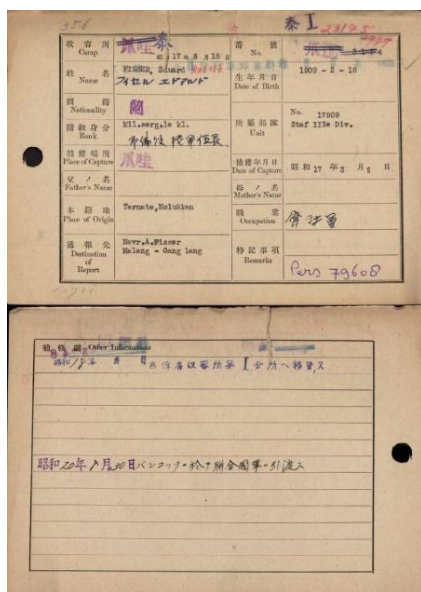 354
泰 I
收容所
Camp
爪哇 泰
昭 17 8 15
番號
No.
爪哇
姓名
Name
FISSER, Eduard
フイセル エドアルド
生年月日
Date of Birth
1909 - 2 - 16
國籍
Nationality
蘭
階級身分
Rank
Mil.serg.1e kl.
所屬部隊
Unit
No. 17509
Staf IIIe Div.
捕獲場所
Place of Capture
爪哇
捕獲年月日
Date of Capture
昭和 17 年 3 月 8 日
父ノ名
Father's Name
母ノ名
Mother's Name
本籍地
Place of Origin
Ternate, Molukken
職業
Occupation
通報先
Destination of Report
Mevr.A.Fisser
Malang - Gang Lang
特記事項
Remarks
Pers 79608
補修欄 Other Informations
昭和18年 月 日 爪俘虜收容所第 I 分所ヘ移管ス
昭和20年 月30日バンコックニ於テ聯合國軍ニ引渡ス